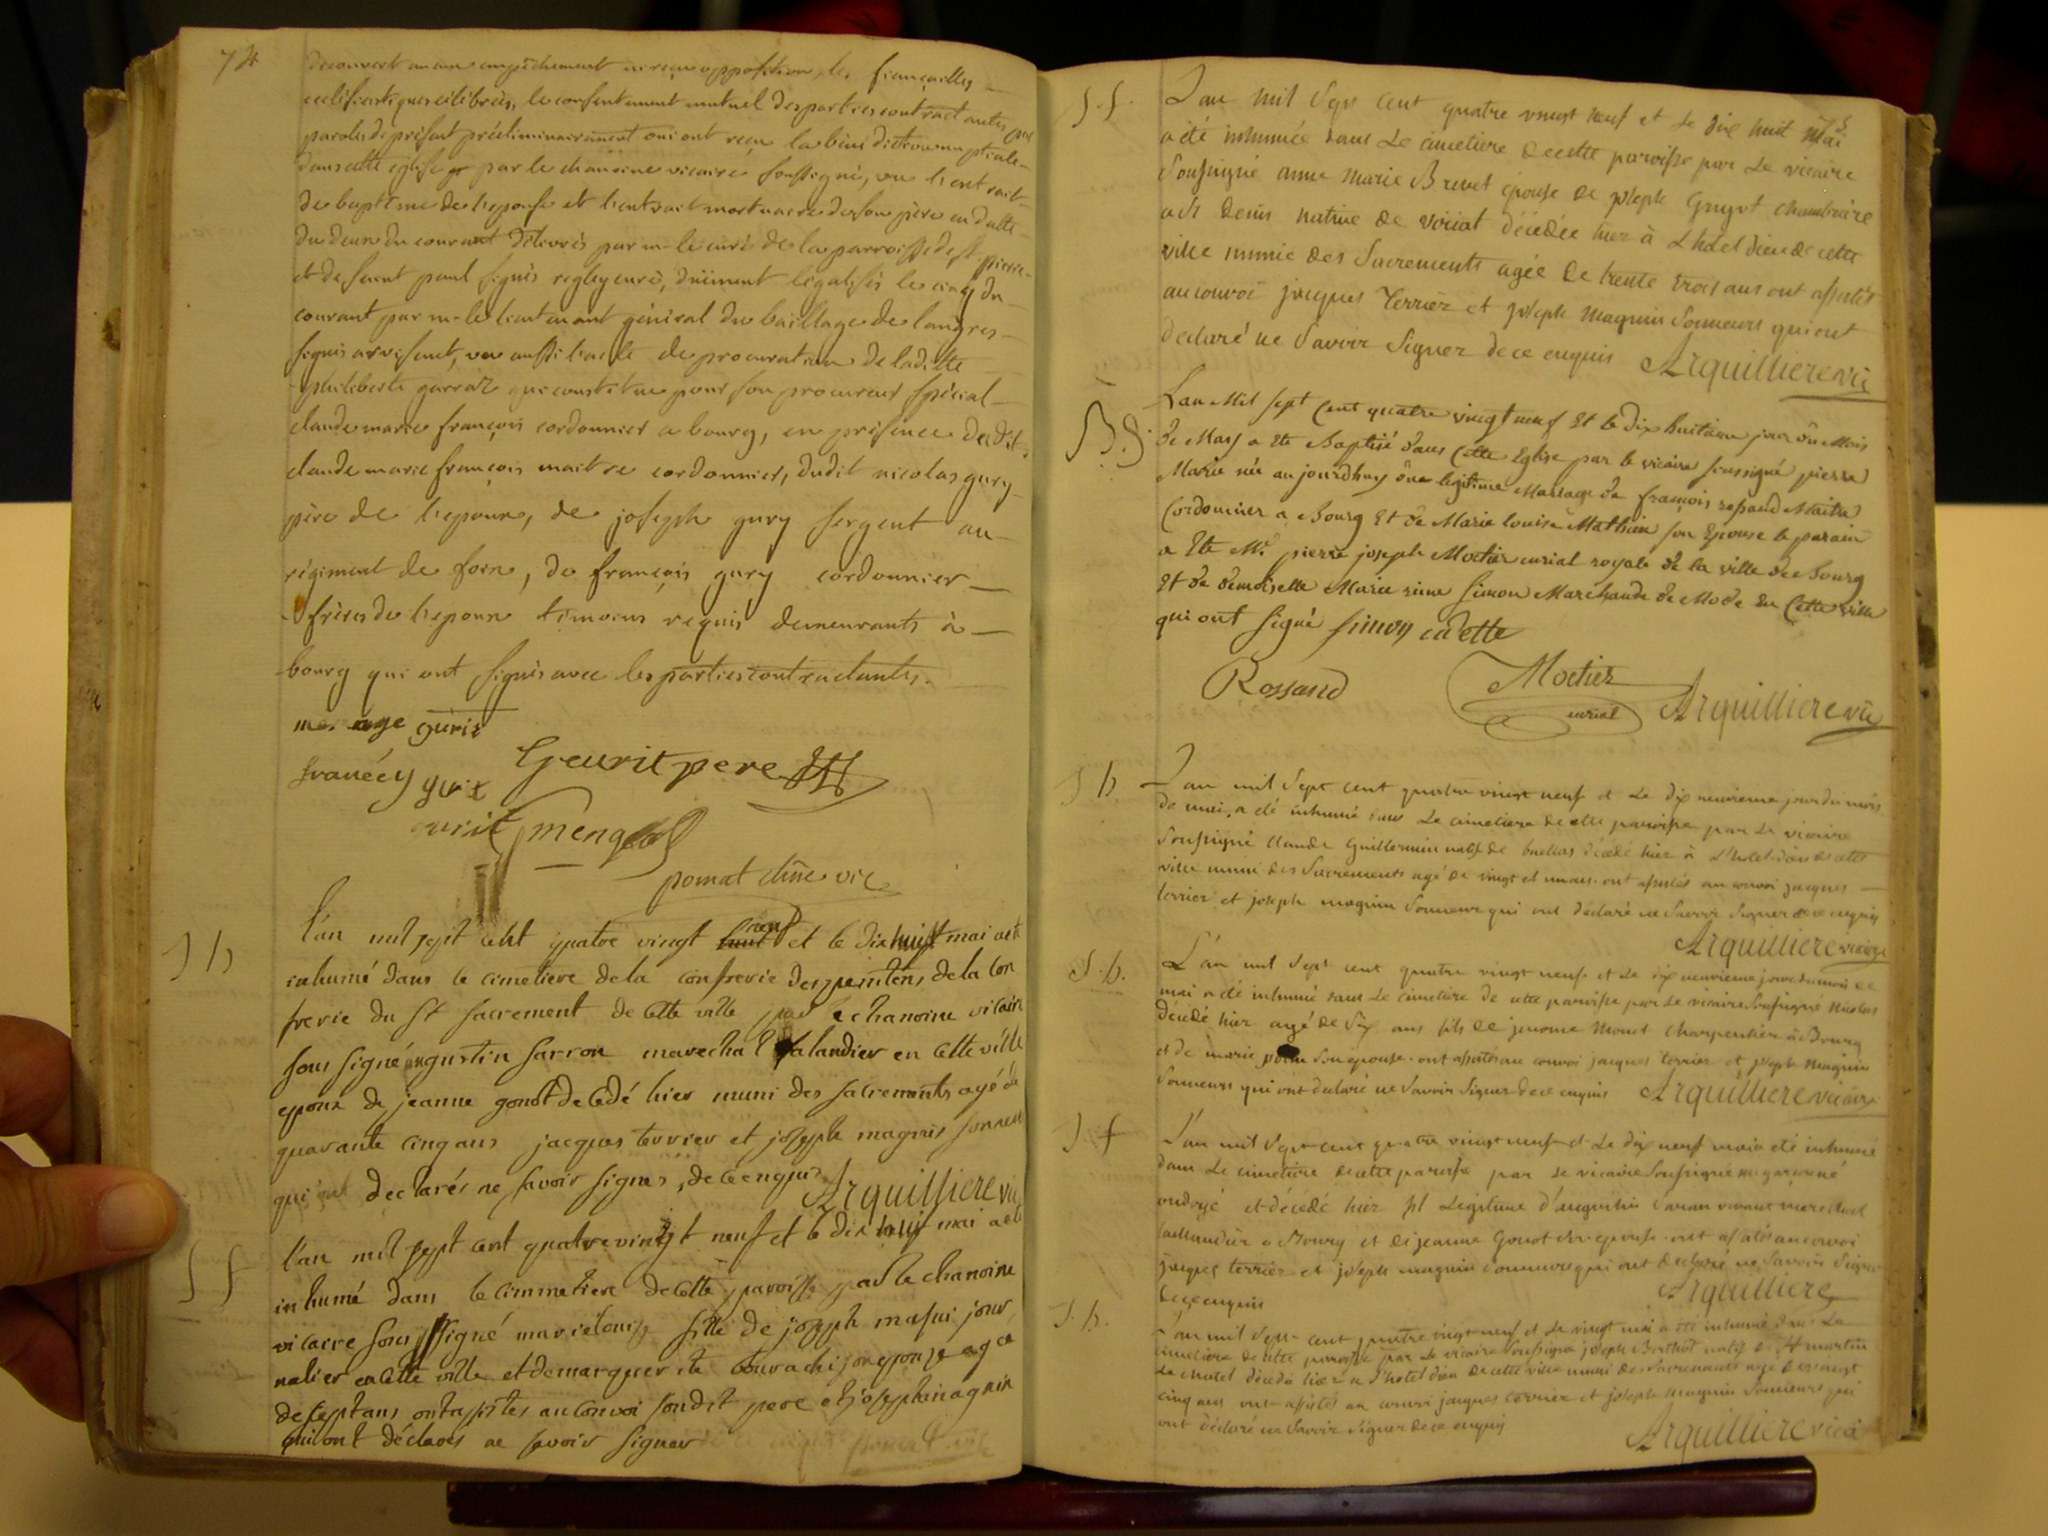 74
decouvert aucun empêchement ni reçu opposition, les fiançailles
ecclésiastiques célébrées, le consentement mutuel des parties contractantes par
paroles de présent préliminairement oui ont reçu la bénédiction nuptiale
dans cette église par le chanoine vicaire soussigné, vu l'extrait
de baptême de l'epouse et l'extrait mortuaire de son père en datte
du deux du courant délivrés par m. le curé de la parroisse de st pierre
et de saint paul signés regley curé, duëment légalisés le cinq du
courant par m. le lieutenant général du bailliage de langres
signés arvisenet, vu aussi l'acte de procuration de ladite
philiberte garraz qui constitue pour son procureur spécial
claude marie françois cordonnier a bourg, en présence dudit
claude marie françois maitre cordonnier, dudit nicolas gury
père de l'epoux, de joseph gury sergent au
régiment de foix, de françois gury cordonnier
frères de l'epoux témoins requis demeurants à
bourg qui ont signés avec les parties contractantes.
guris
francey gurit
Geurit pere
gurit mengeol
pomat chne vic
S h
l'an mil sept cent quatre vingt neuf et le dix huit mai a eté
inhumé dans le cimetiere de la confrerie des penitens de la con
frerie du St sacrement de cette ville par le chanoine vicaire
sous signé augustin sarron marechal talandier en cette ville
epoux de jeanne gonot decedé hier muni des sacrements agé de
quarante cinq ans jacques terrier et joseph magnin sonneurs
qui ont declarés ne savoir signer, de ce enquis Arquilliere vic
S f
l'an mil sept cent quatre vingt neuf et le dix huit mai a eté
inhumé dans le cimmetiere de cette paroisse par le chanoine
vicaire sous signé marie louise fille de joseph masui jour
nalier en cette ville et de marguerite convachi son epouse agée
de sept ans ont assistés au convoi son dit pere et joseph magnin
qui ont déclarés ne savoir signer
75
S. f.
L'an mil sept cent quatre vingt neuf et le dix huit mai
a été inhumée dans le cimetiere de cette paroisse par le vicaire
soussigné anne marie Brevet épouse de joseph Guyot chambrière
a st denis native de viriat décédée hier à l'hotel dieu de cette
ville munie des sacrements agée de trente trois ans ont assistés
au convoi jacques Terrier et joseph magnin sonneurs qui ont
declaré ne savoir signer de ce enquis Arquilliere vic
B. g
L'an Mil sept Cent quatre vingt neuf Et le dix huitieme jour du Mois
de May a Eté Baptisé dans Cette Eglise par le vicaire soussigné pierre
Marie né aujourdhuy du legitime Mariage de françois rossand Maitre
Cordonnier a Bourg Et de Marie louise Mathieu son Epouse le parain
a Eté Mr pierre joseph Moctier curial royale de la ville de bourg
Et de demoiselle Marie rime Simon Marchande de Mode En Cette ville
qui ont signé simon cadette
Rossand Moctier curial Arquilliere vic
S h.
L'an mil sept cent quatre vingt neuf et le dix neuvieme jour du mois
de mai, a été inhumé dans le cimetiere de cette paroisse par le vicaire
soussigné Claude Guillermin natif de buellas décédé hier à l'hotel-dieu de cette
ville muni des sacrements agé de vingt et un ans. ont assistés au convoi jacques
terrier et joseph magnin sonneurs qui ont déclaré ne savoir signer de ce enquis
Arquilliere vicaire
S. h.
L'an mil sept cent quatre vingt neuf et le dix neuvieme jour du mois de
mai a été inhumé dans le cimetiere de cette paroisse par le vicaire soussigné Nicolas
décédé hier agé de six ans fils de jerome Monet charpentier à Bourg
et de marie son épouse. ont assistés au convoi jacques terrier et joseph magnin
sonneurs qui ont declaré ne savoir signer de ce enquis Arquilliere vicaire
S f
L'an mil sept cent quatre vingt neuf et le dix neuf mai a été inhumé
dans le cimetiere de cette paroisse par le vicaire soussigné un garçon né
ondoyé et décédé hier fil légitime d'augustin Saron vivant marechal
taillandier a Bourg et de jeanne Gonot son epouse. ont assistés au convoi
jacques terrier et joseph magnin sonneurs qui ont declaré ne savoir signer
de ce enquis Arquilliere
S. h.
L'an mil sept cent quatre vingt neuf et le vingt mai a été inhumé dans le
cimetiere de cette paroisse par le vicaire soussigné joseph Berthot natif de St martin
le chatel décédé hier a l'hotel dieu de cette ville muni des sacrements agé de vingt
cinq ans ont assistés au convoi jacques terrier et joseph magnin sonneurs qui
ont déclaré ne savoir signer de ce enquis
Arquilliere vicai